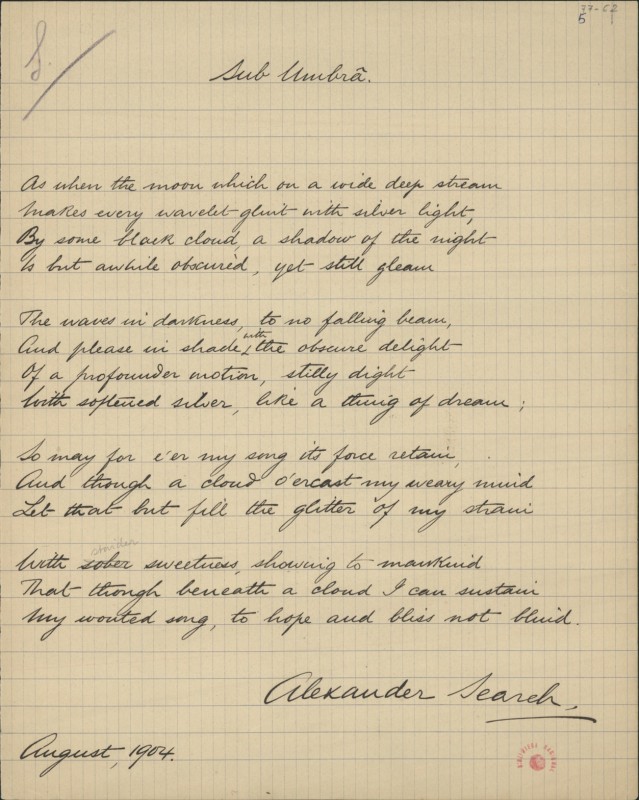 77-62
5
Sub Umbrâ.
As when the moon which on a wide deep stream
Makes every wavelet glint with silver light,
By some black cloud, a shadow of the night
Is but awhile obscurèd, yet still gleam
The waves in darkness, to no falling beam,
And please in shade, with the obscure delight
Of a profounder motion, stilly dight
With softened silver, like a thing of dream;
So may for e'er my song its force retain,
And though a cloud o'ercast my weary mind
Let that but fill the glitter of my strain
With sober sweetness, showing to mankind
That though beneath a cloud I can sustain
My wonted song, to hope and bliss not blind.
Alexander Search.
August, 1904.
BIBLIOTECA NACIONAL